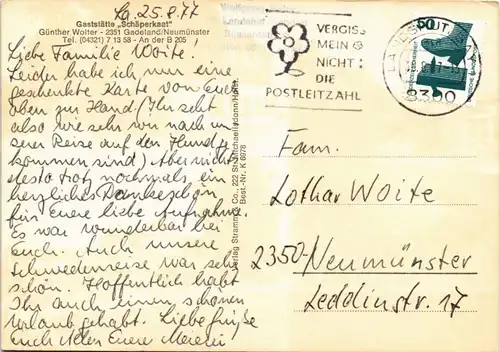 La. 25.8.77
Gaststätte „Schäperkaat"
Günther Wolter - 2351 Gadeland/Neumünster
Tel. (04321) 7 13 58 - An der B 205
Liebe Familie Woite.
Leider habe ich nur eine
geschenkte Karte von Euch
oben zur Hand. (Ihr seht
also wie sehr wir nach un
serer Reise auf den Hund ge
kommen sind) Aber nichts
desto trotz nochmals ein
herzliches Dankeschön
für Euere liebe Aufnahme.
Es war wunderbar bei
Euch. Auch unsere
Schwedenreise war sehr
schön. Hoffentlich habt
Ihr auch einen schönen
Urlaub gehabt. Liebe Grüße
euch Allen Euere
Verlag Stramm & Co., 222 St. Michaelisdonn/Holst.
Best.-Nr. K 8978
VERGISS
MEIN
NICHT:
DIE
POSTLEITZAHL
LANDSHUT
8300
50
Fam.
Lothar Woite
2350 Neumünster
Leddinstr. 17